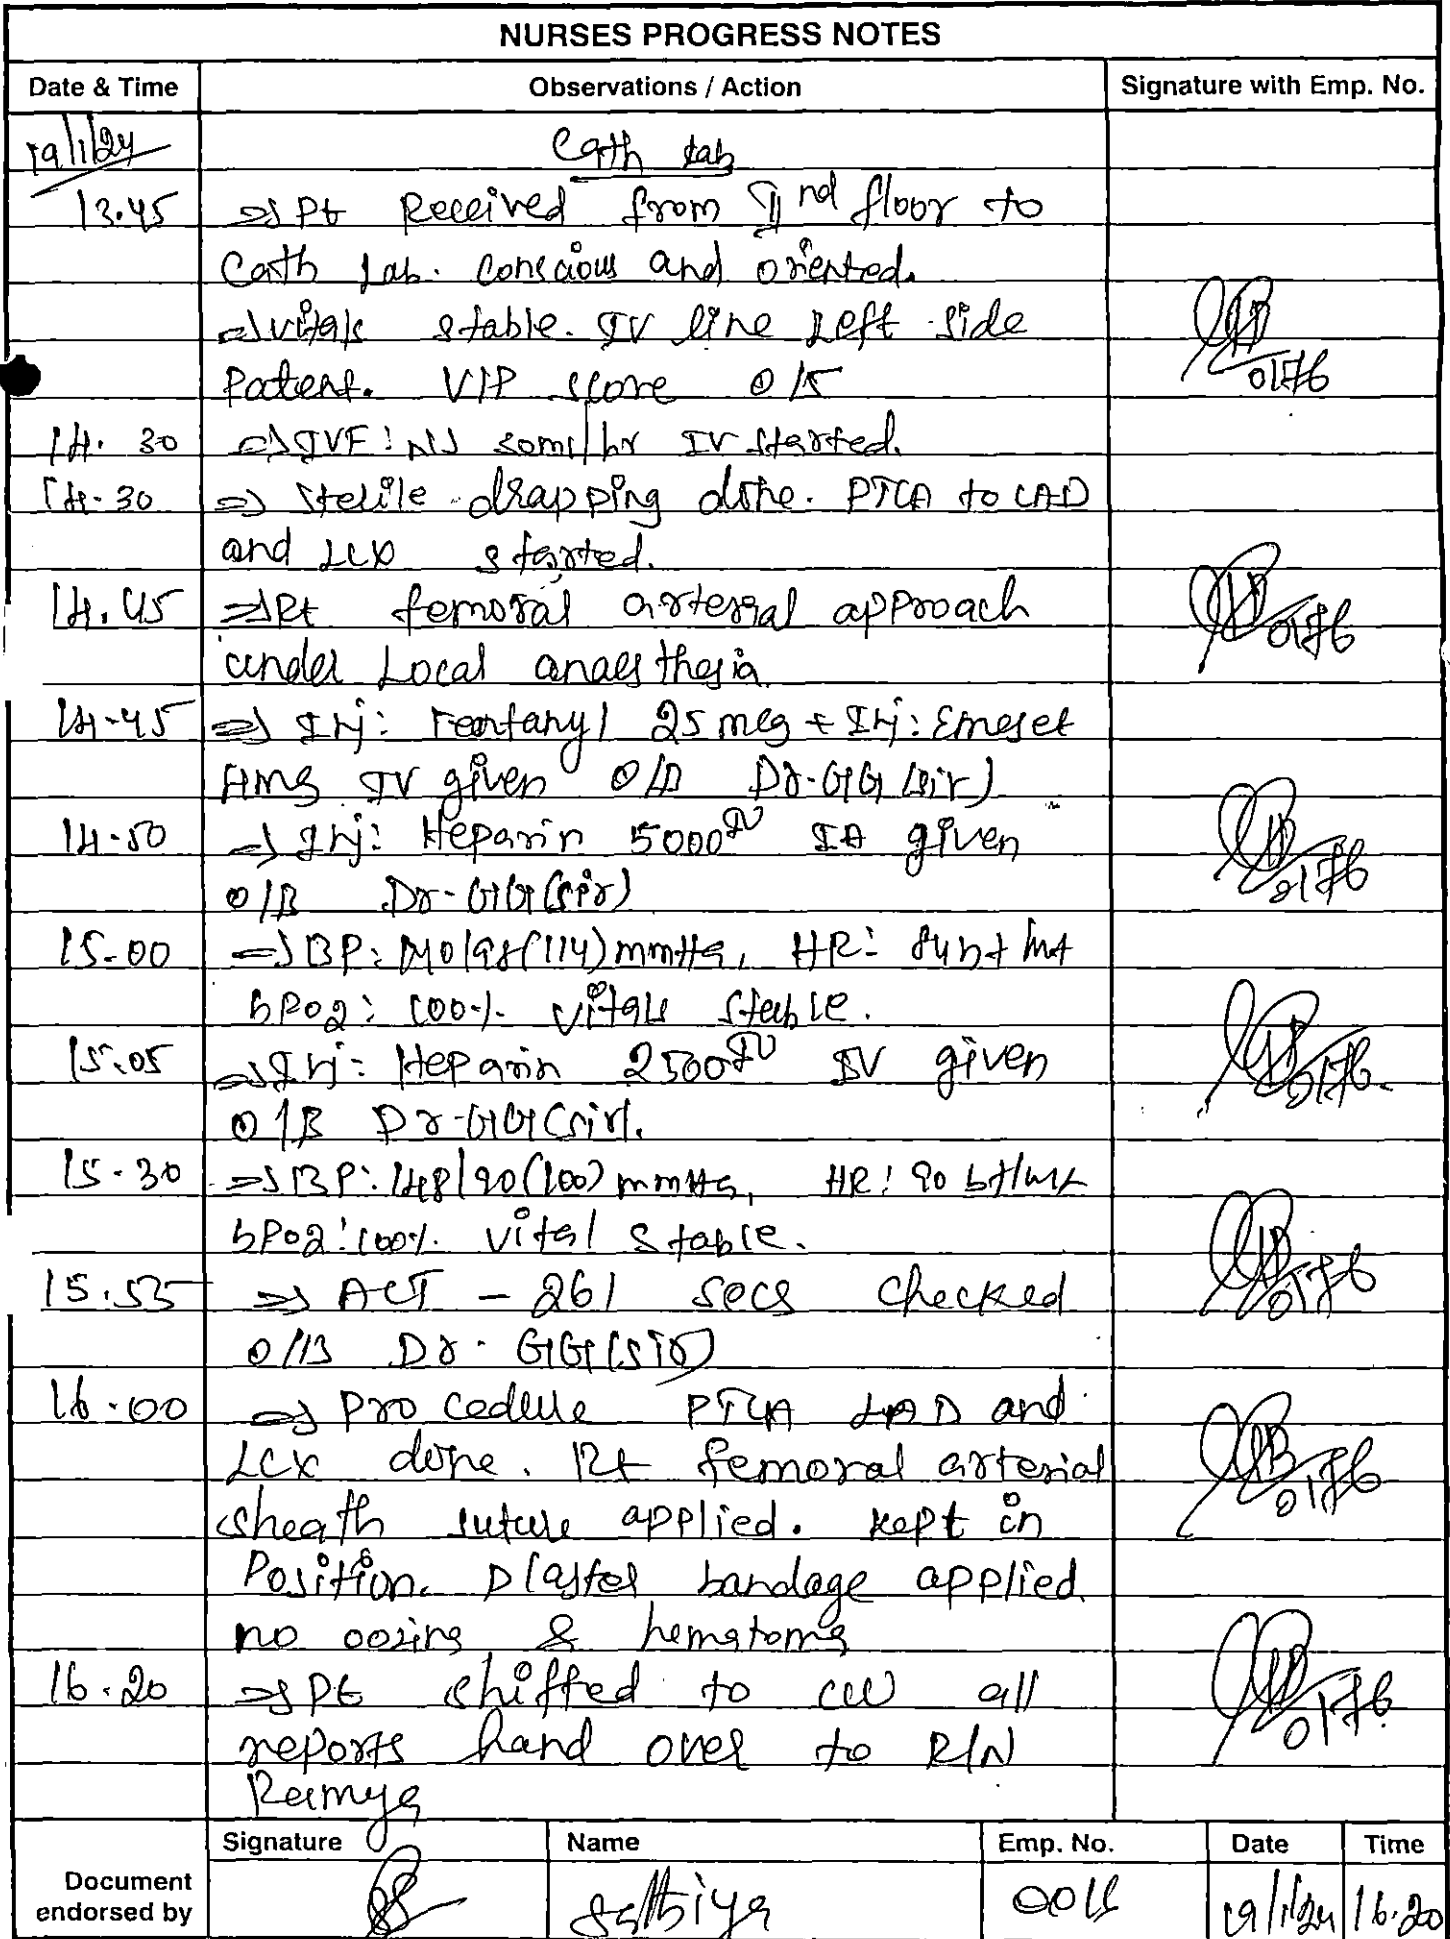 NURSES PROGRESS NOTES
Date & Time Observations / Action Signature with Emp. No.
19/1/24 Cath Lab
13.45 => Pt Received from IInd floor to
Cath Lab. conscious and oriented.
=> vitals stable. IV line Left side
Patent. VIP score 0/5
0176
14.30 => IVF: NS 50ml/hr IV started.
14.30 => Sterile drapping done. PTCA to LAD
and LCX started.
14.45 => Rt femoral arterial approach
0176
under Local anaesthesia
14-45 => Inj: Fentanyl 25 mcg + Inj: Emeset
4mg IV given O/B Dr-GG (sir)
14-50 => Inj: Heparin 5000IU IA given
0176
O/B Dr-GG (sir)
15-00 => BP: 140/98(114) mmHg, HR: 84bt/mt
SPO2: 100%. vitals stable.
15.05 => Inj: Heparin 2500IU IV given
0176.
O/B Dr-GG (sir).
15-30 => BP: 148/90(100) mmHg, HR: 90 bt/mt
SPO2: 100%. vital stable.
15.55 => ACT - 261 secs checked
0176
O/B Dr. GG (sir)
16.00 => Procedure PTCA LAD and
LCX done. Rt femoral arterial
0176
sheath suture applied. kept in
Position. Plaster bandage applied.
no oozing & hematoma
16.20 => Pt shifted to CCU all
0176
reports hand over to R/N
Ramya
Signature Name Emp. No. Date Time
Document
endorsed by Sathiya 19/1/24 16.20